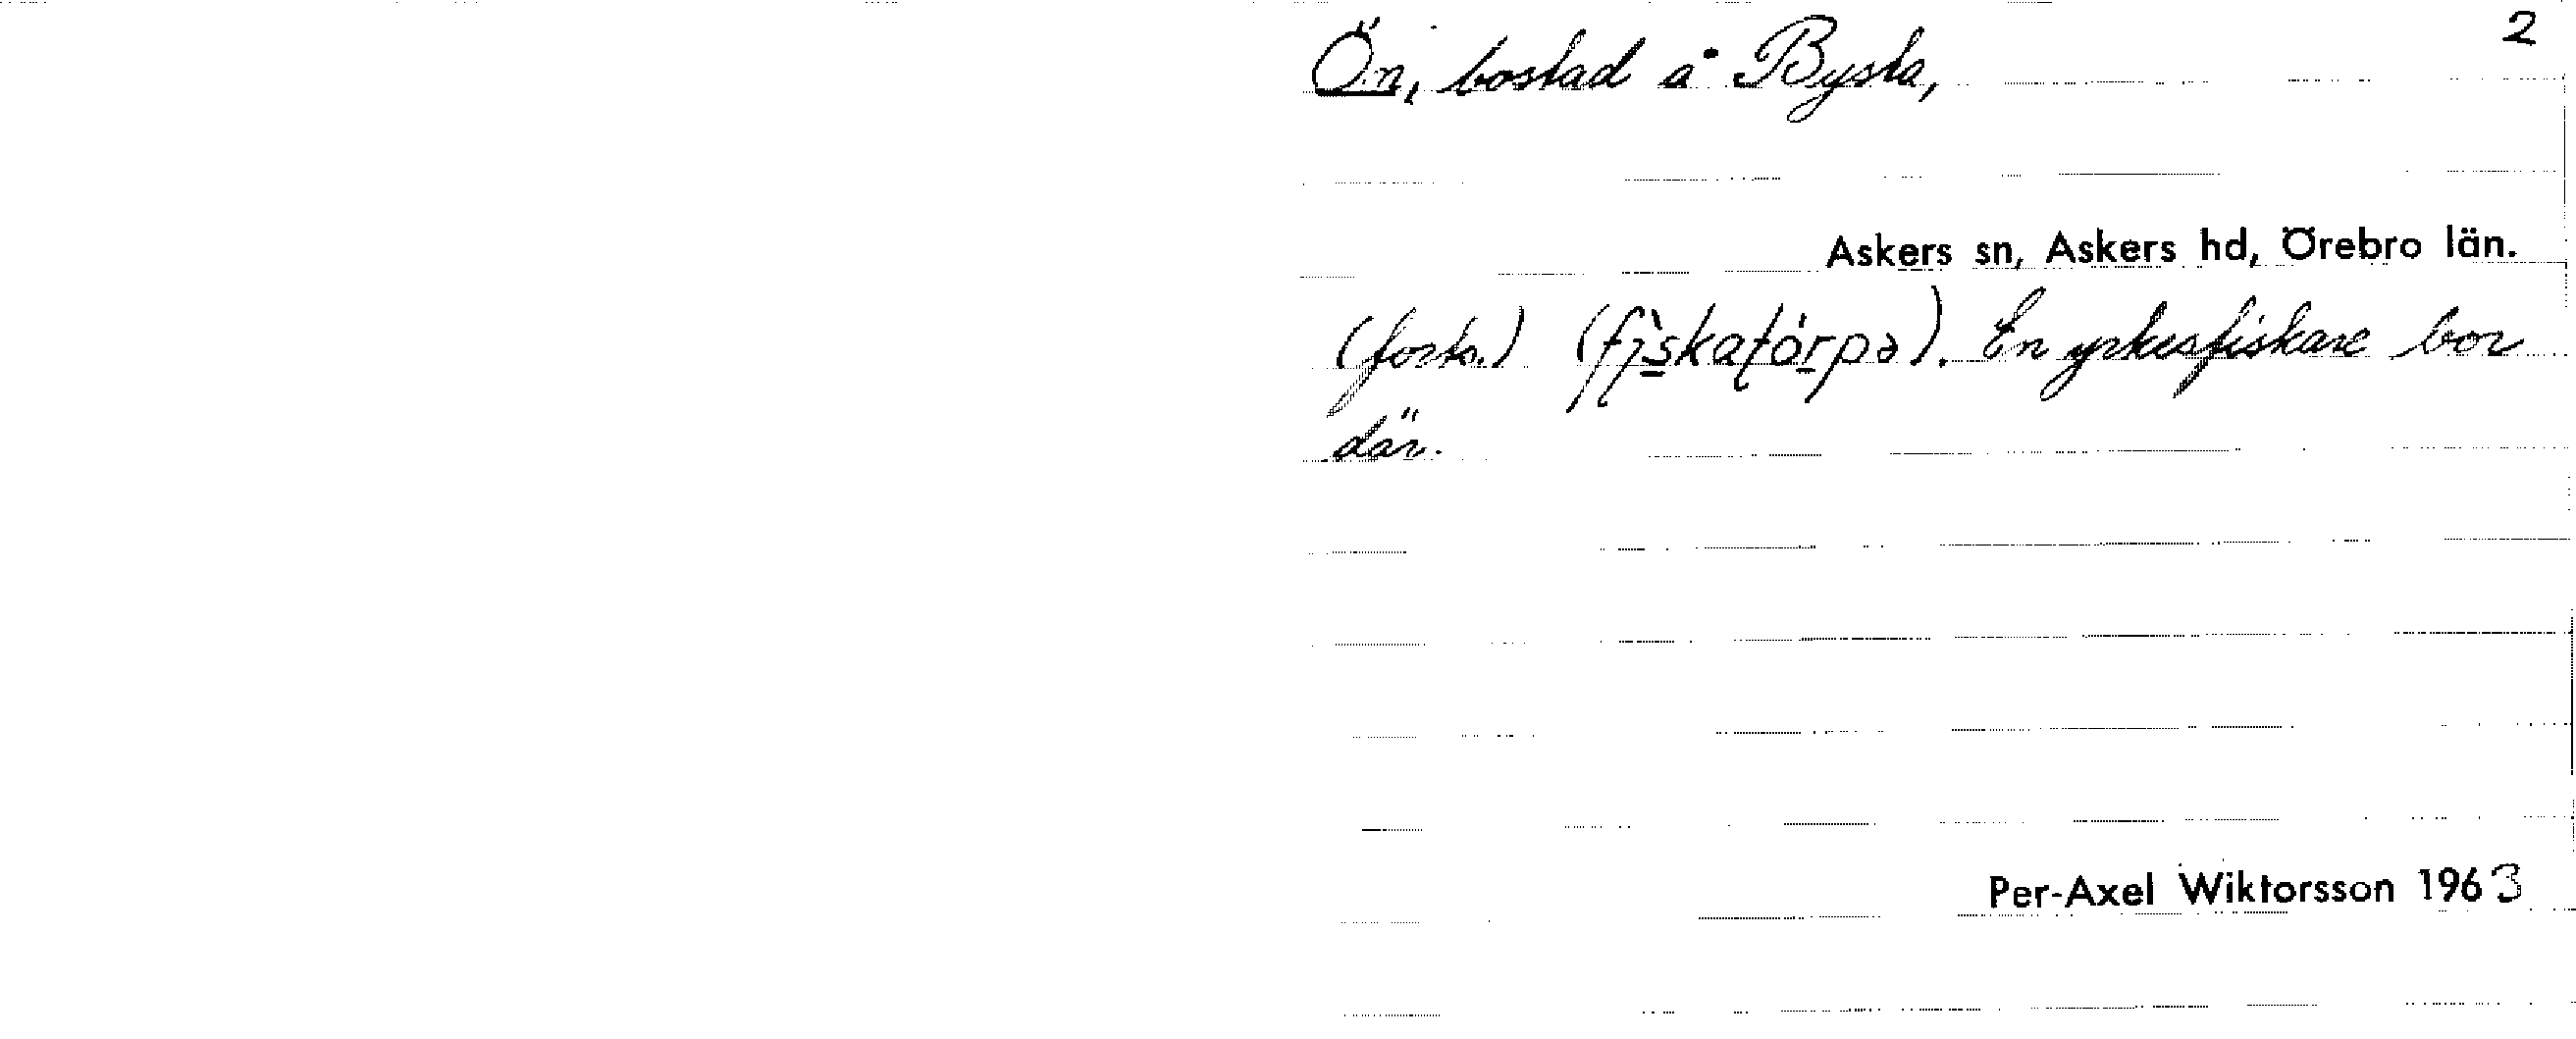 2
Ön, bostad å Bysta,
Askers sn, Askers hd, Örebro län.
(forts.) (fìskatórpə). En yrkesfiskare bor
där.
Per-Axel Wiktorsson 1963